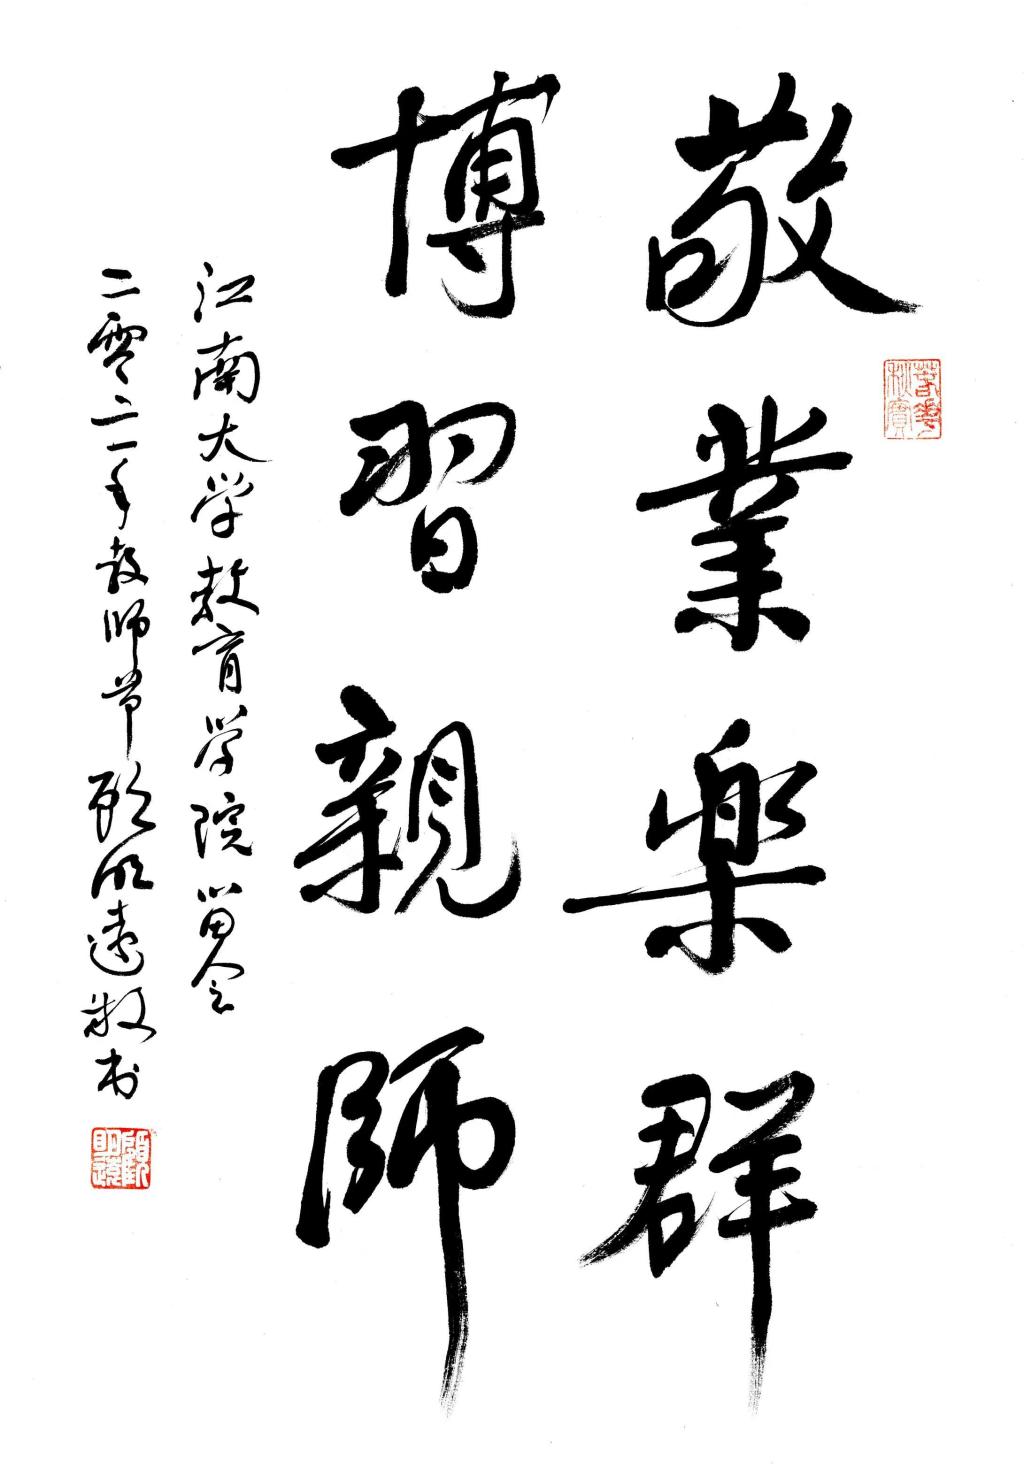 敬業樂群
博習親師
江南大学教育学院留念
二零二一年教师节顾明远敬书
春華秋實
顧明遠